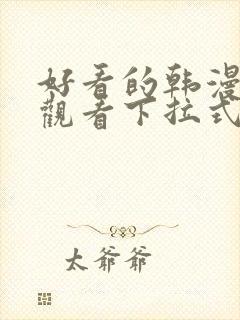 好看的韩漫
觀看下拉式
太爺爺